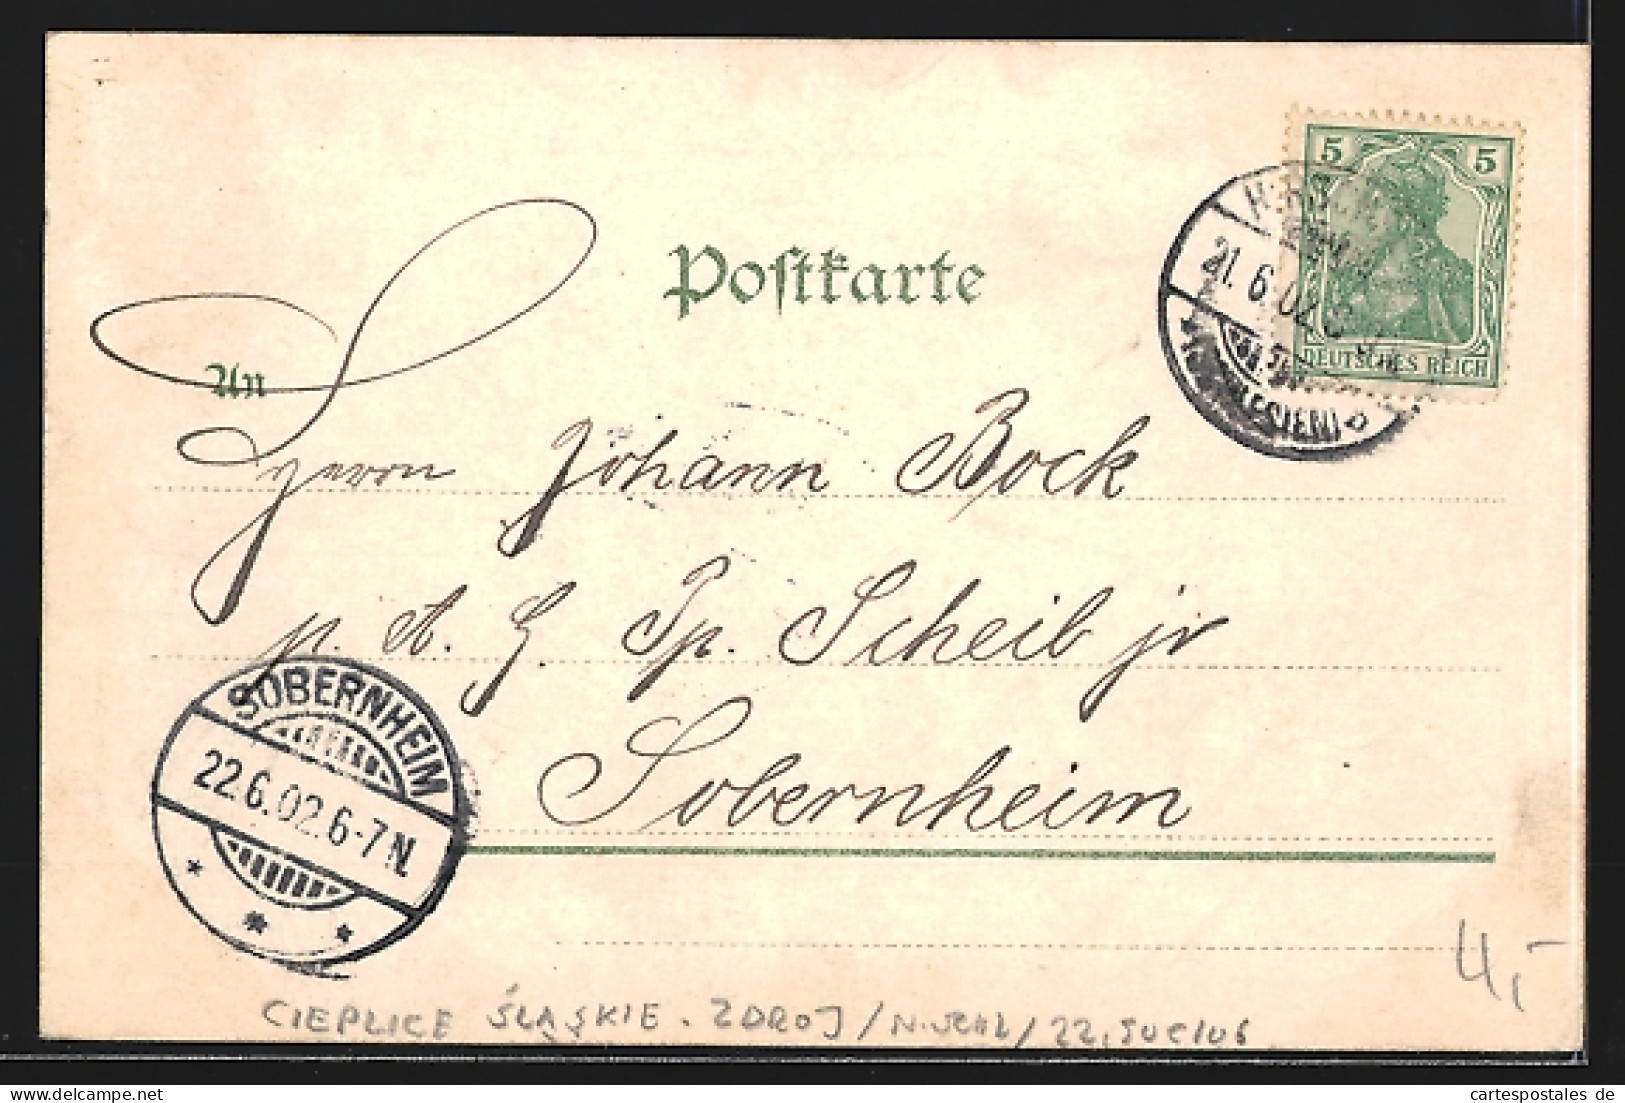 Postkarte
5 5
DEUTSCHES REICH
21.6.02
An
Herrn Johann Bock
p. A. H. Ph. Scheib jr
Sobernheim
SOBERNHEIM
22.6.02.6-7N.
* * *
4,-
CIEPLICE ŚLĄSKIE. ZDROJ /
cartespostales de